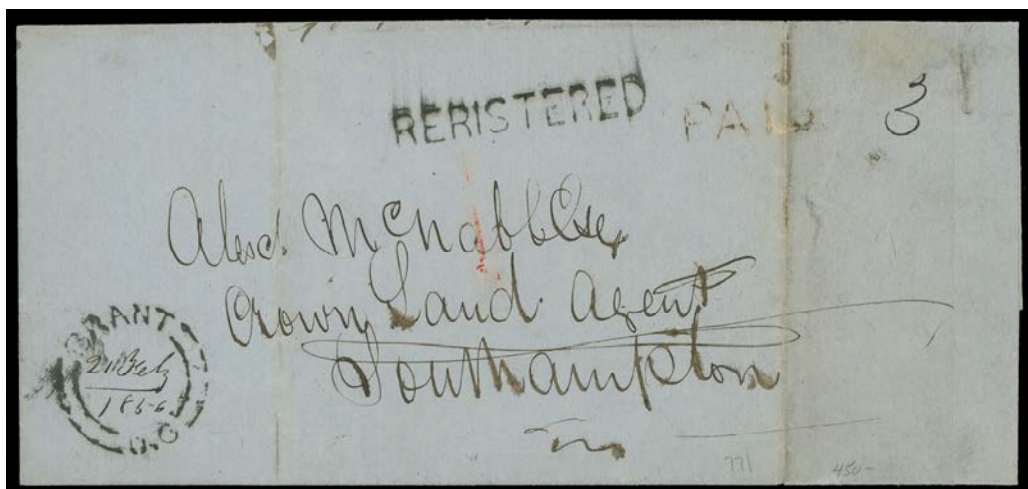 REGISTERED PAID 3
Alexd. McNabb Esq
Crown Land Agent
Southampton
BRANT
21 Feby
1856
U.C
771 450-